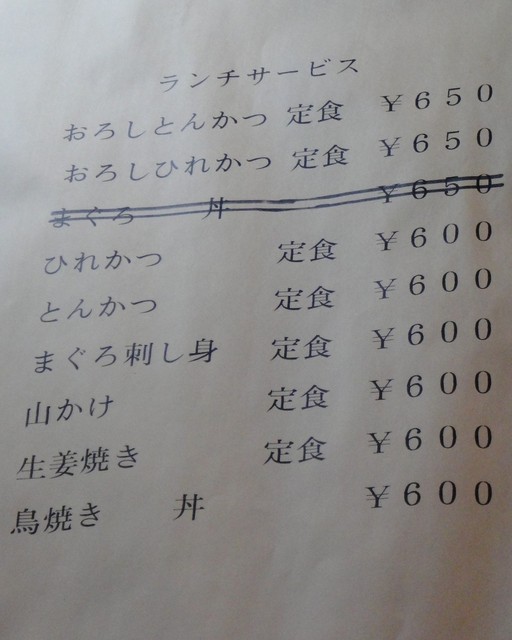 ランチサービス
おろしとんかつ 定食 ￥６５０
おろしひれかつ 定食 ￥６５０
まぐろ 丼 ￥６５０
ひれかつ 定食 ￥６００
とんかつ 定食 ￥６００
まぐろ刺し身 定食 ￥６００
山かけ 定食 ￥６００
生姜焼き 定食 ￥６００
鳥焼き 丼 ￥６００